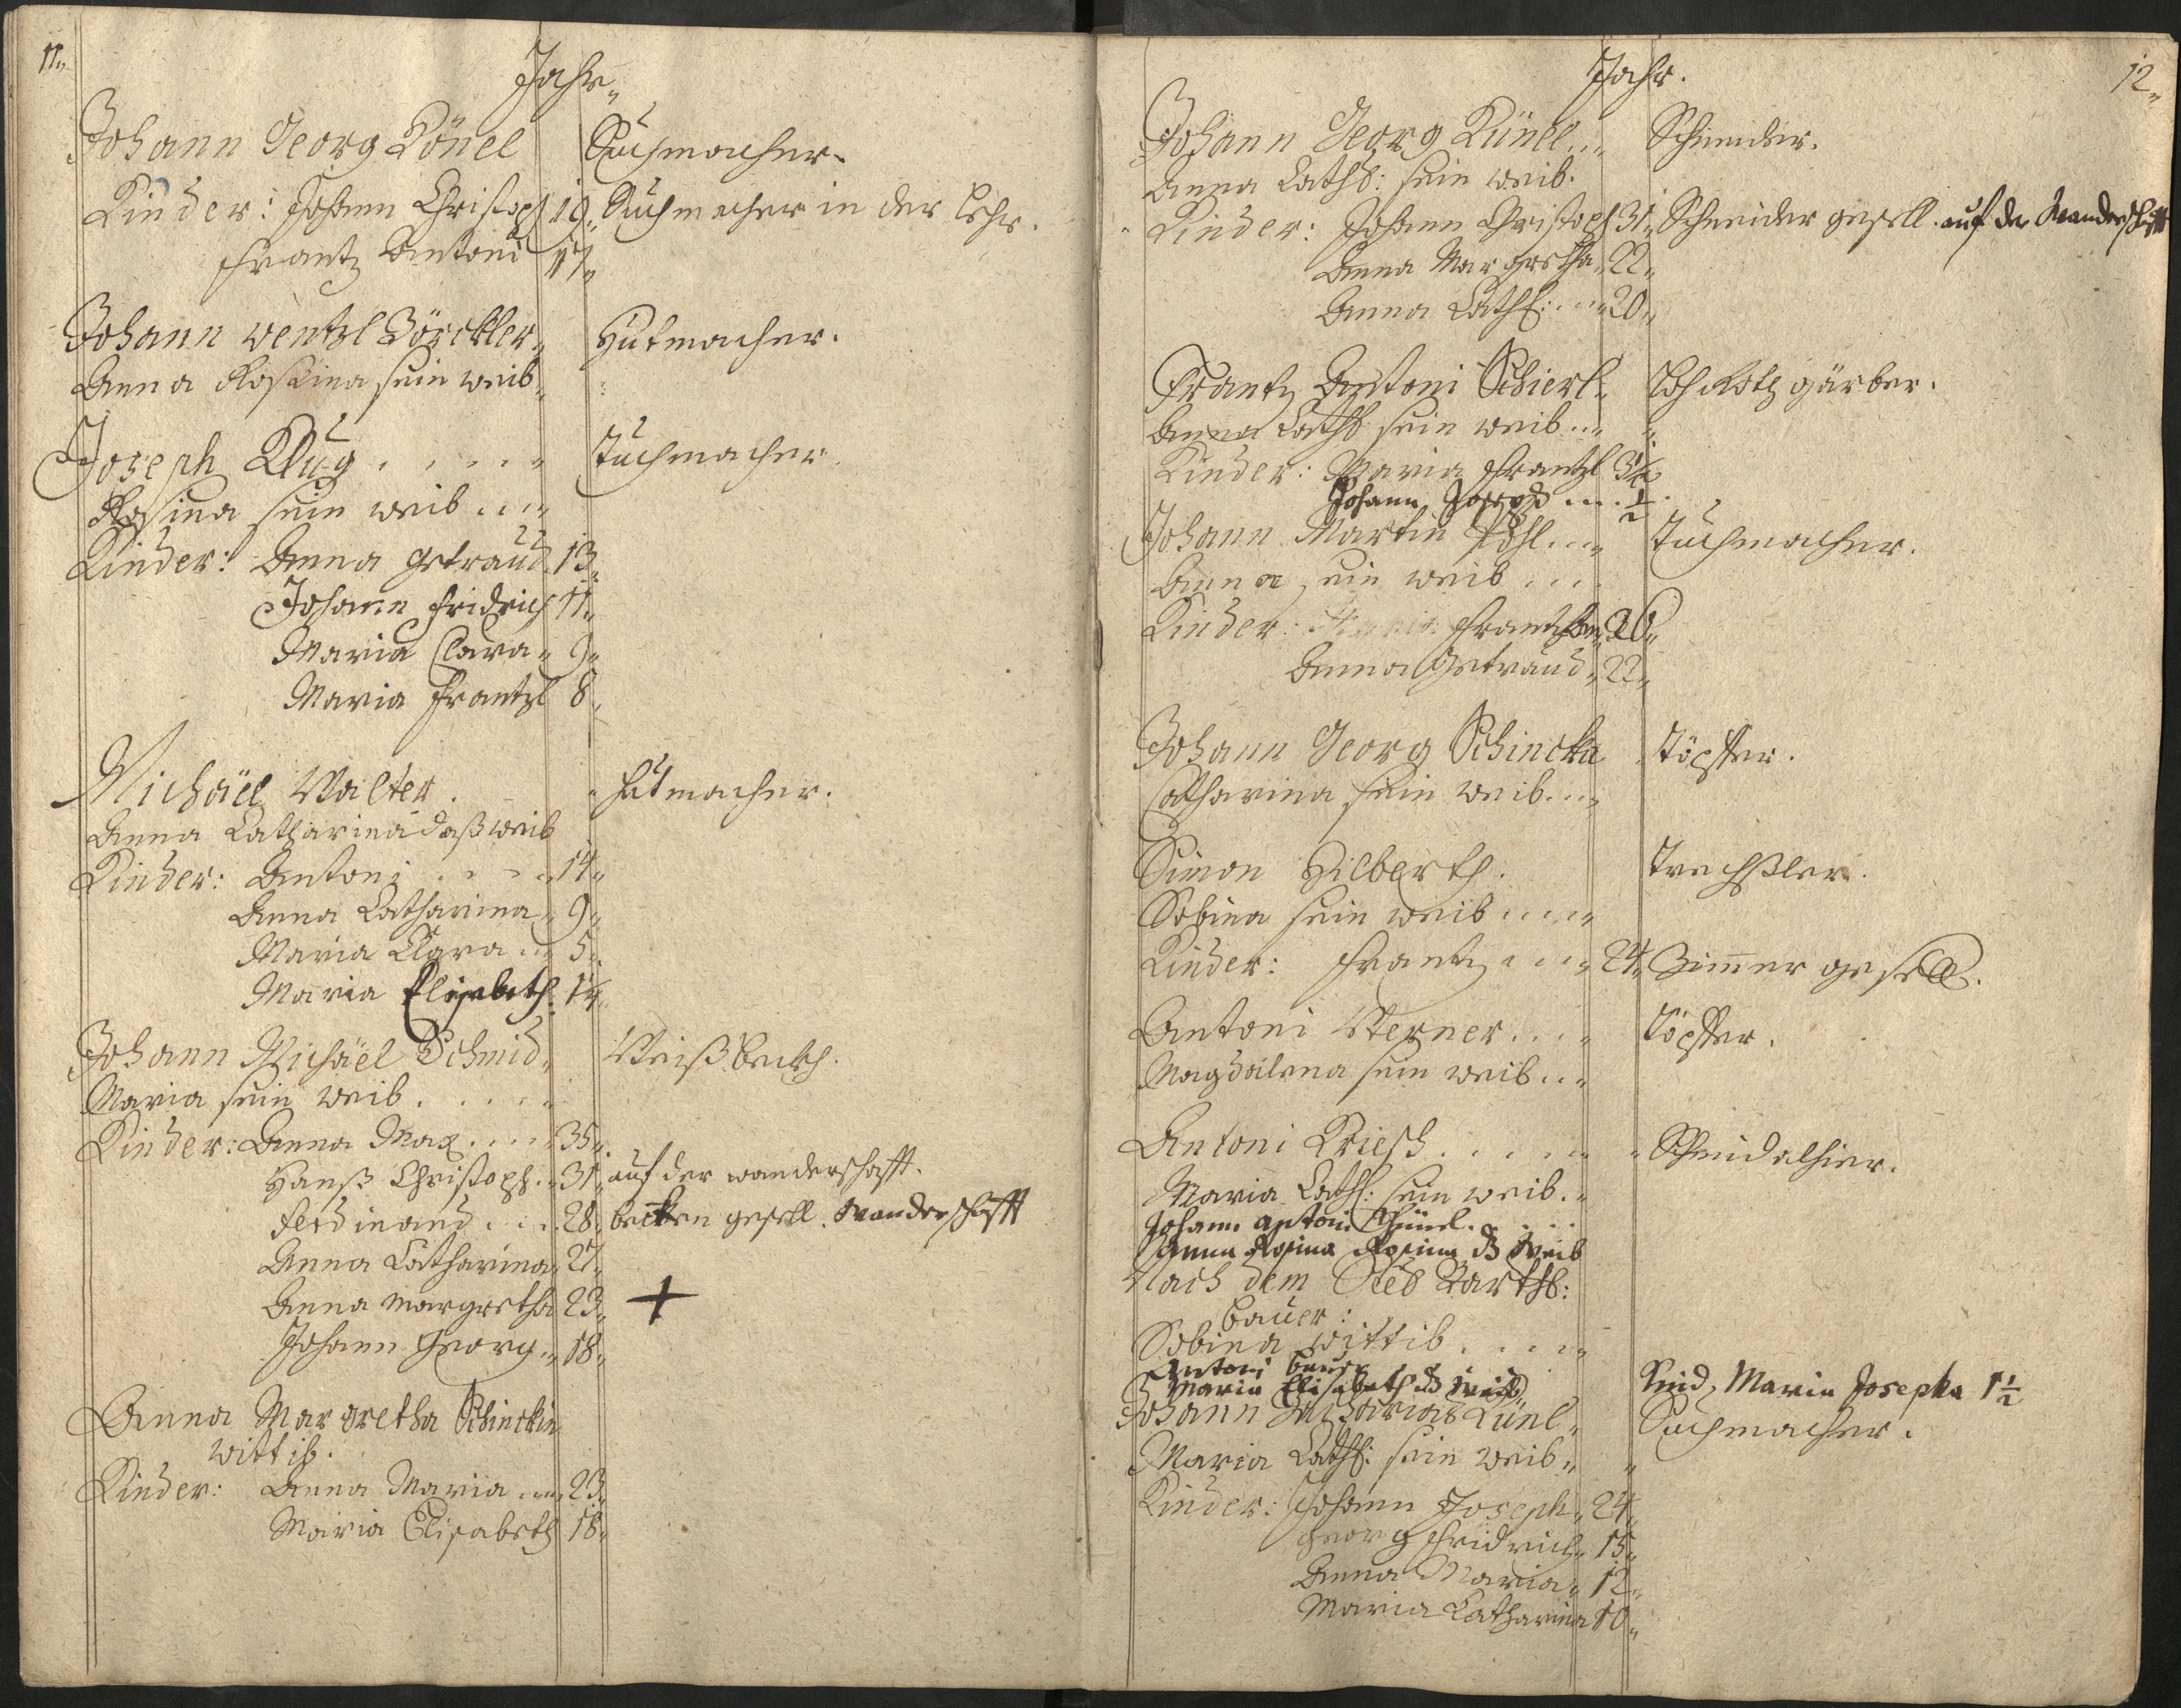 11.
Jahr
Johann Georg Könel Tuchmacher.
Kinder: Johann Christoph 19. Tuchmacher in der Lehr.
Frantz Antoni 17
Johann Wentzl Hutmacher.
Anna Rossina sein weib
Joseph Klug Tuchmacher
Rosina sein weib
Kinder: Anna Getraud 13
Johann Fridrich 11
Maria Clara 9
Maria Frantzl 8
Michäel Walter Hutmacher.
Anna Catharina daß weib
Kinder: Antoni 14
Anna Catharina 9
Maria Clara 5
Maria Elisabeth
Johann Michäel Schmid Weißbeckh.
Maria sein weib
Kinder: Anna Mar. 35
Hanß Christoph 31 auf der wanderschafft.
Ferdinand 28 becken gesell. Wanderschafft
Anna Catharina 27
Anna Margretha 23 +
Johann Georg 18
Anna Margretha Schinckin
Wittib.
Kinder: Anna Maria 23
Maria Elisabeth 18
12
Jahr.
Johann Georg Künel Schneider.
Anna Cathr: sein weib.
Kinder: Johann Christoph 31 Schneider gesell. auf der Wanderschafft
Anna Margretha 22
Anna Cathr: 20
Frantz Antoni Schierl Loh Roth gärber.
Anna Cathr sein weib
Kinder: Maria Frantzl
Johann Joseph 1/2
Johann Martin Pöhl Tuchmacher.
Anna sein weib
Kinder: Maria 26
Anna Getraud 22
Johann Georg Schincka Töpffer.
Catharina sein weib
Simon Hilberth. Trechßler.
Sabina sein weib
Kinder: Frantz 24 Zimmer gesell.
Antoni Werner Töpffer.
Magdalena sein weib
Antoni Kriesch Schmid alhier.
Maria Cath: sein weib
Johann Antoni
Anna Rosina Rosina d weib
Nach dem Barthl:
Bauer:
Sabina wittib
Antoni Bauer
Maria Elisabeth d weib Kind, Maria Josepha 1 1/2
Johann Zacharias Künl Tuchmacher.
Maria Cathr: sein weib
Kinder: Johann Joseph 24
Georg Fridrich 15
Anna Maria 12
Maria Catharina 10